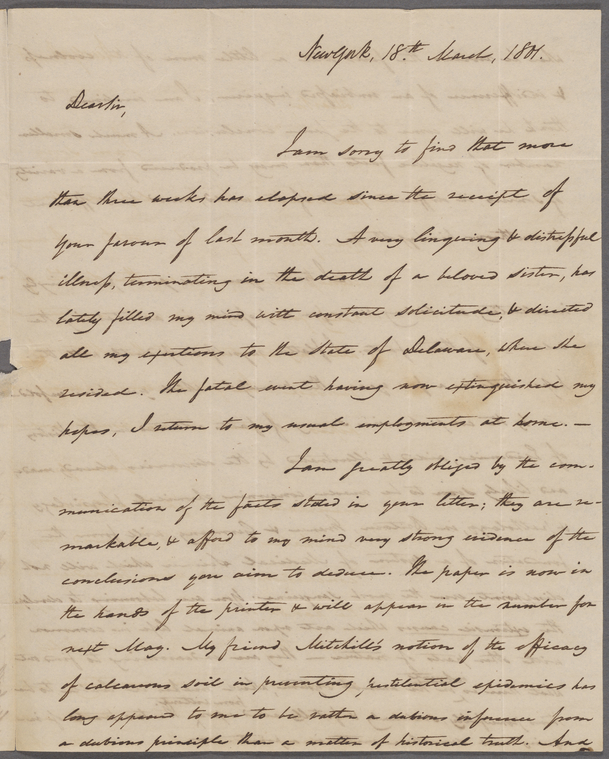 NewYork, 18.th March, 1801.
Dear Sir,
I am sorry to find that more
than three weeks has elapsed since the receipt of
your favour of last month. A very lingering & distressful
illness, terminating in the death of a beloved sister, has
lately filled my mind with constant solicitude, & directed
all my exertions to the State of Delaware, where she
resided. The fatal event having now extinguished my
hopes, I return to my usual employments at home. —
I am greatly obliged by the com-
munication of the facts stated in your letter; they are re-
markable, & afford to my mind very strong evidence of the
conclusions you aim to deduce. The paper is now in
the hands of the printer & will appear in the number for
next May. My friend Mitchill's notion of the efficacy
of calcareous soil in preventing pestilential epidemics has
long appeared to me to be rather a dubious inference from
a dubious principle than a matter of historical truth. And